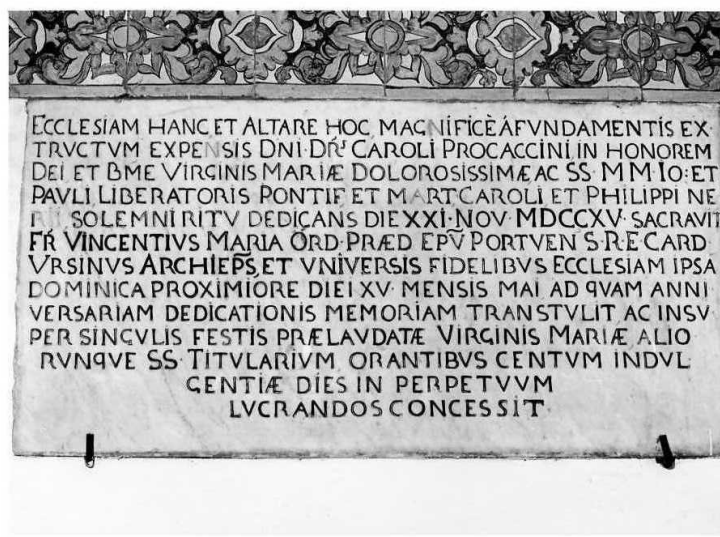 ECCLESIAM HANC ET ALTARE HOC MAGNIFICÈ Á FVNDAMENTIS EX·
TRVCTVM EXPENSIS DNI· DR̃ṣ CAROLI PROCACCINI, IN HONOREM
DEI ET BME VIRGINIS MARIÆ DOLOROSISSIMÆ AC SS· M M· IO· ET
PAVLI, LIBERATORIS PONTIF· ET MART· CAROLI, ET PHILIPPI NE
RII SOLEMNI RITV DEDICANS DIE XXI· NOV· MDCCXV· SACRAVIT
FR̃ VINCENTIVS MARIA ORD· PRÆD· EPŨ PORTVEN· S· R· E CARD·
VRSINVS ARCHIEP̃S, ET VNIVERSIS FIDELIBVS ECCLESIAM IPSA
DOMINICA PROXIMIORE DIEI XV· MENSIS MAI AD QVAM ANNI
VERSARIAM DEDICATIONIS MEMORIAM TRANSTVLIT AC INSV
PER SINGVLIS FESTIS PRÆLAVDATÆ VIRGINIS MARIÆ, ALIO
RVNQVE SS· TITVLARIVM ORANTIBVS CENTVM INDVL·
GENTIÆ DIES IN PERPETVVM
LVCRANDOS CONCESSIT·